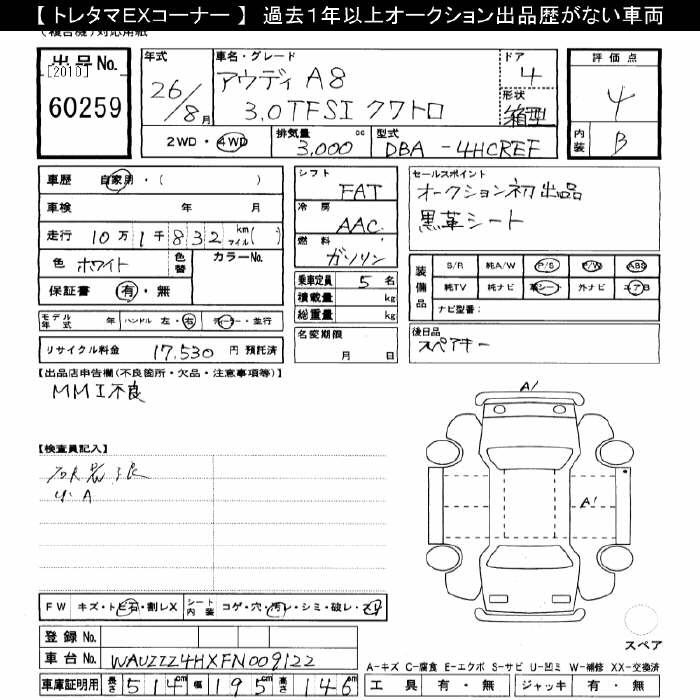 【トレタマEXコーナー】 過去1年以上オークション出品歴がない車両
(複合機)対応用紙
出品No.
[2010]
60259
年式
26/8月
車名・グレード
アウディ A8
3.0TFSI クワトロ
ドア
4
形状
箱型
評価点
4
内装
B
2WD・4WD
排気量
3,000 cc
型式
DBA -4HCREF
車歴 自家用・( )
車検 年 月
走行 10万1千832 km マイル( )
色 ホワイト
色替
カラーNo.
保証書 有・無
モデル年式 年 ハンドル 左・右 ディーラー・並行
リサイクル料金 17,530 円 預託済
シフト
FAT
冷房
AAC
燃料
ガソリン
乗車定員 5 名
積載量 kg
総重量 kg
名変期限
月 日
セールスポイント
オークション初出品
黒革シート
装備品
S/R 純A/W P/S P/W ABS
純TV 純ナビ 革シート 外ナビ エアB
ナビ型番:
後日品
スペアキー
【出品店申告欄(不良箇所・欠品・注意事項等)】
MMI不良
【検査員記入】
A
A1
A1
FW キズ・トビ石・割レX
シート内装 コゲ・穴・汚レ・シミ・破レ・スレ
登録No.
車台No. WAUZZZ4HXFN009122
車庫証明用 長さ 514cm 幅 195cm 高さ 146cm
スペア
A-キズ C-腐食 E-エクボ S-サビ U-凹ミ W-補修 XX-交換済
工具 有・無 ジャッキ 有・無